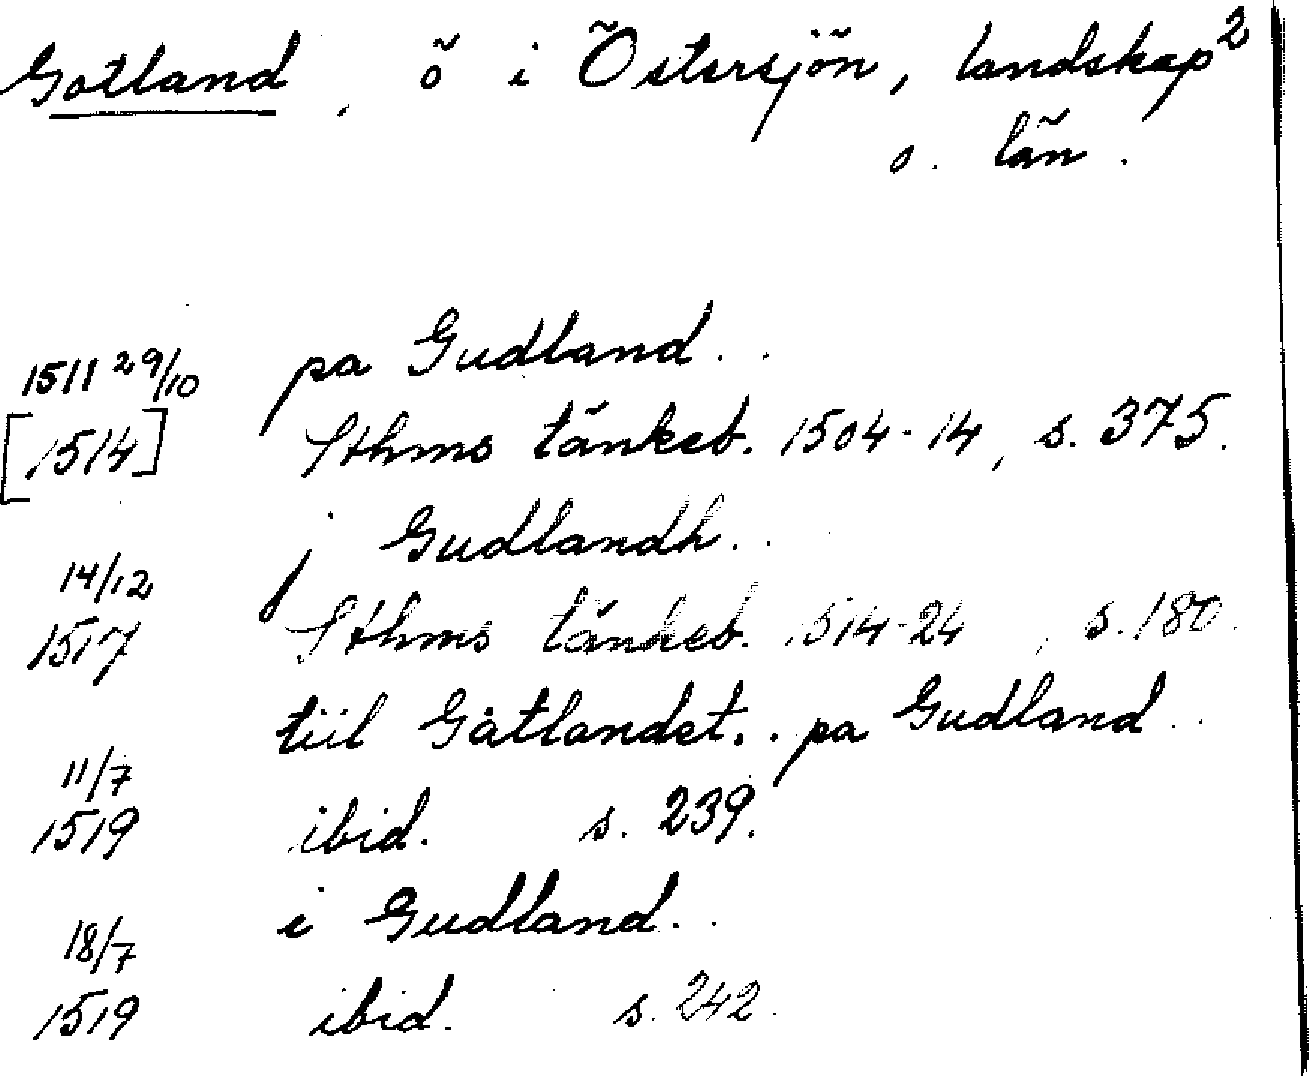 Gotland, ö i Östersjön, landskap 2
o. län.
1511 29/10 pa Gudland..
[1514] Sthms tänkeb. 1504-14, s. 375.
j Gudlandh..
14/12
1517 Sthms tänkeb. 1514-24, s. 180.
tiil Gåtlandet.. pa Gudland..
11/7
1519 ibid. s. 239.
i Gudland..
18/7
1519 ibid. s. 242.